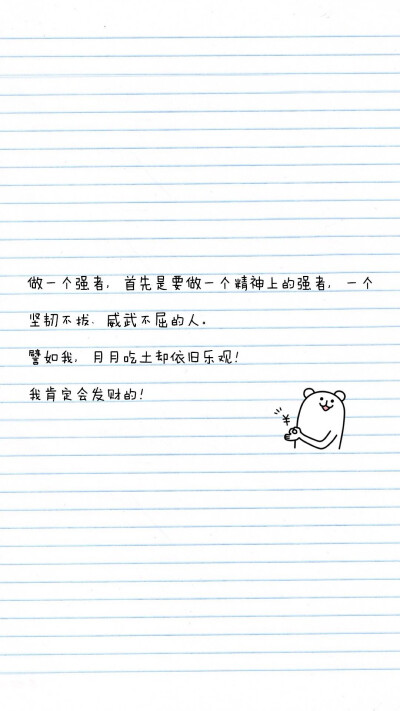 做一个强者，首先是要做一个精神上的强者，一个
坚韧不拔．威武不屈的人。
譬如我，月月吃土却依旧乐观！
我肯定会发财的！
¥